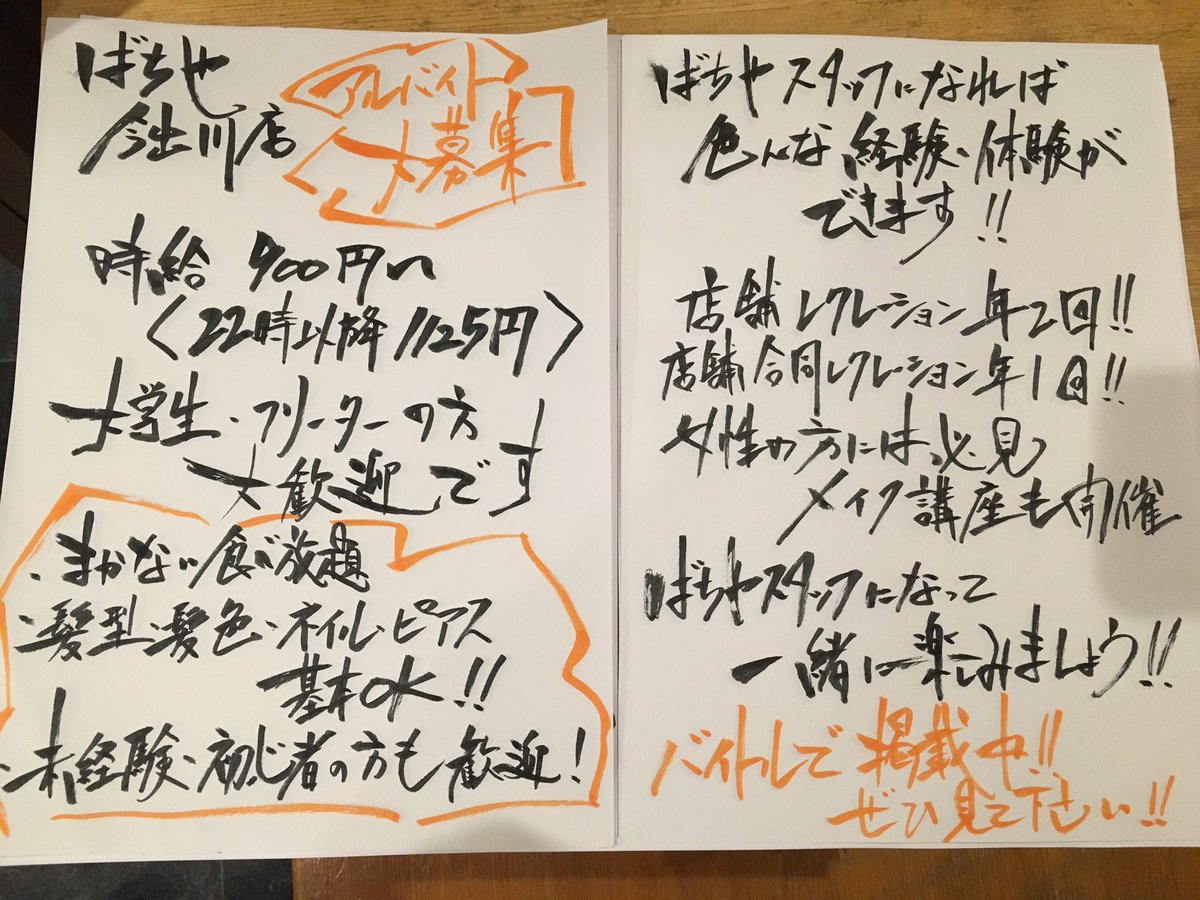 ばちや
今出川店
アルバイト
大募集
時給 900円〜
〈22時以降1125円〉
大学生・フリーターの方
大歓迎です
・まかない食べ放題
・髪型・髪色・ネイル・ピアス
基本OK!!
・未経験・初心者の方も歓迎!
ばちやスタッフになれば
色んな経験・体験が
できます!!
店舗レクレーション年2回!!
店舗合同レクレーション年1回!!
女性の方には必見
メイク講座も開催
ばちやスタッフになって
一緒に楽しみましょう!!
バイトルで掲載中!!
ぜひ見て下さい!!